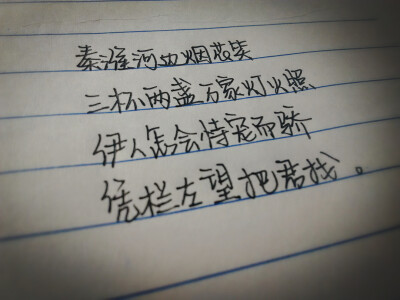 秦淮河烟花
三杯两盏万家灯火照
伊人会恃宠而骄
凭栏左望把君找。